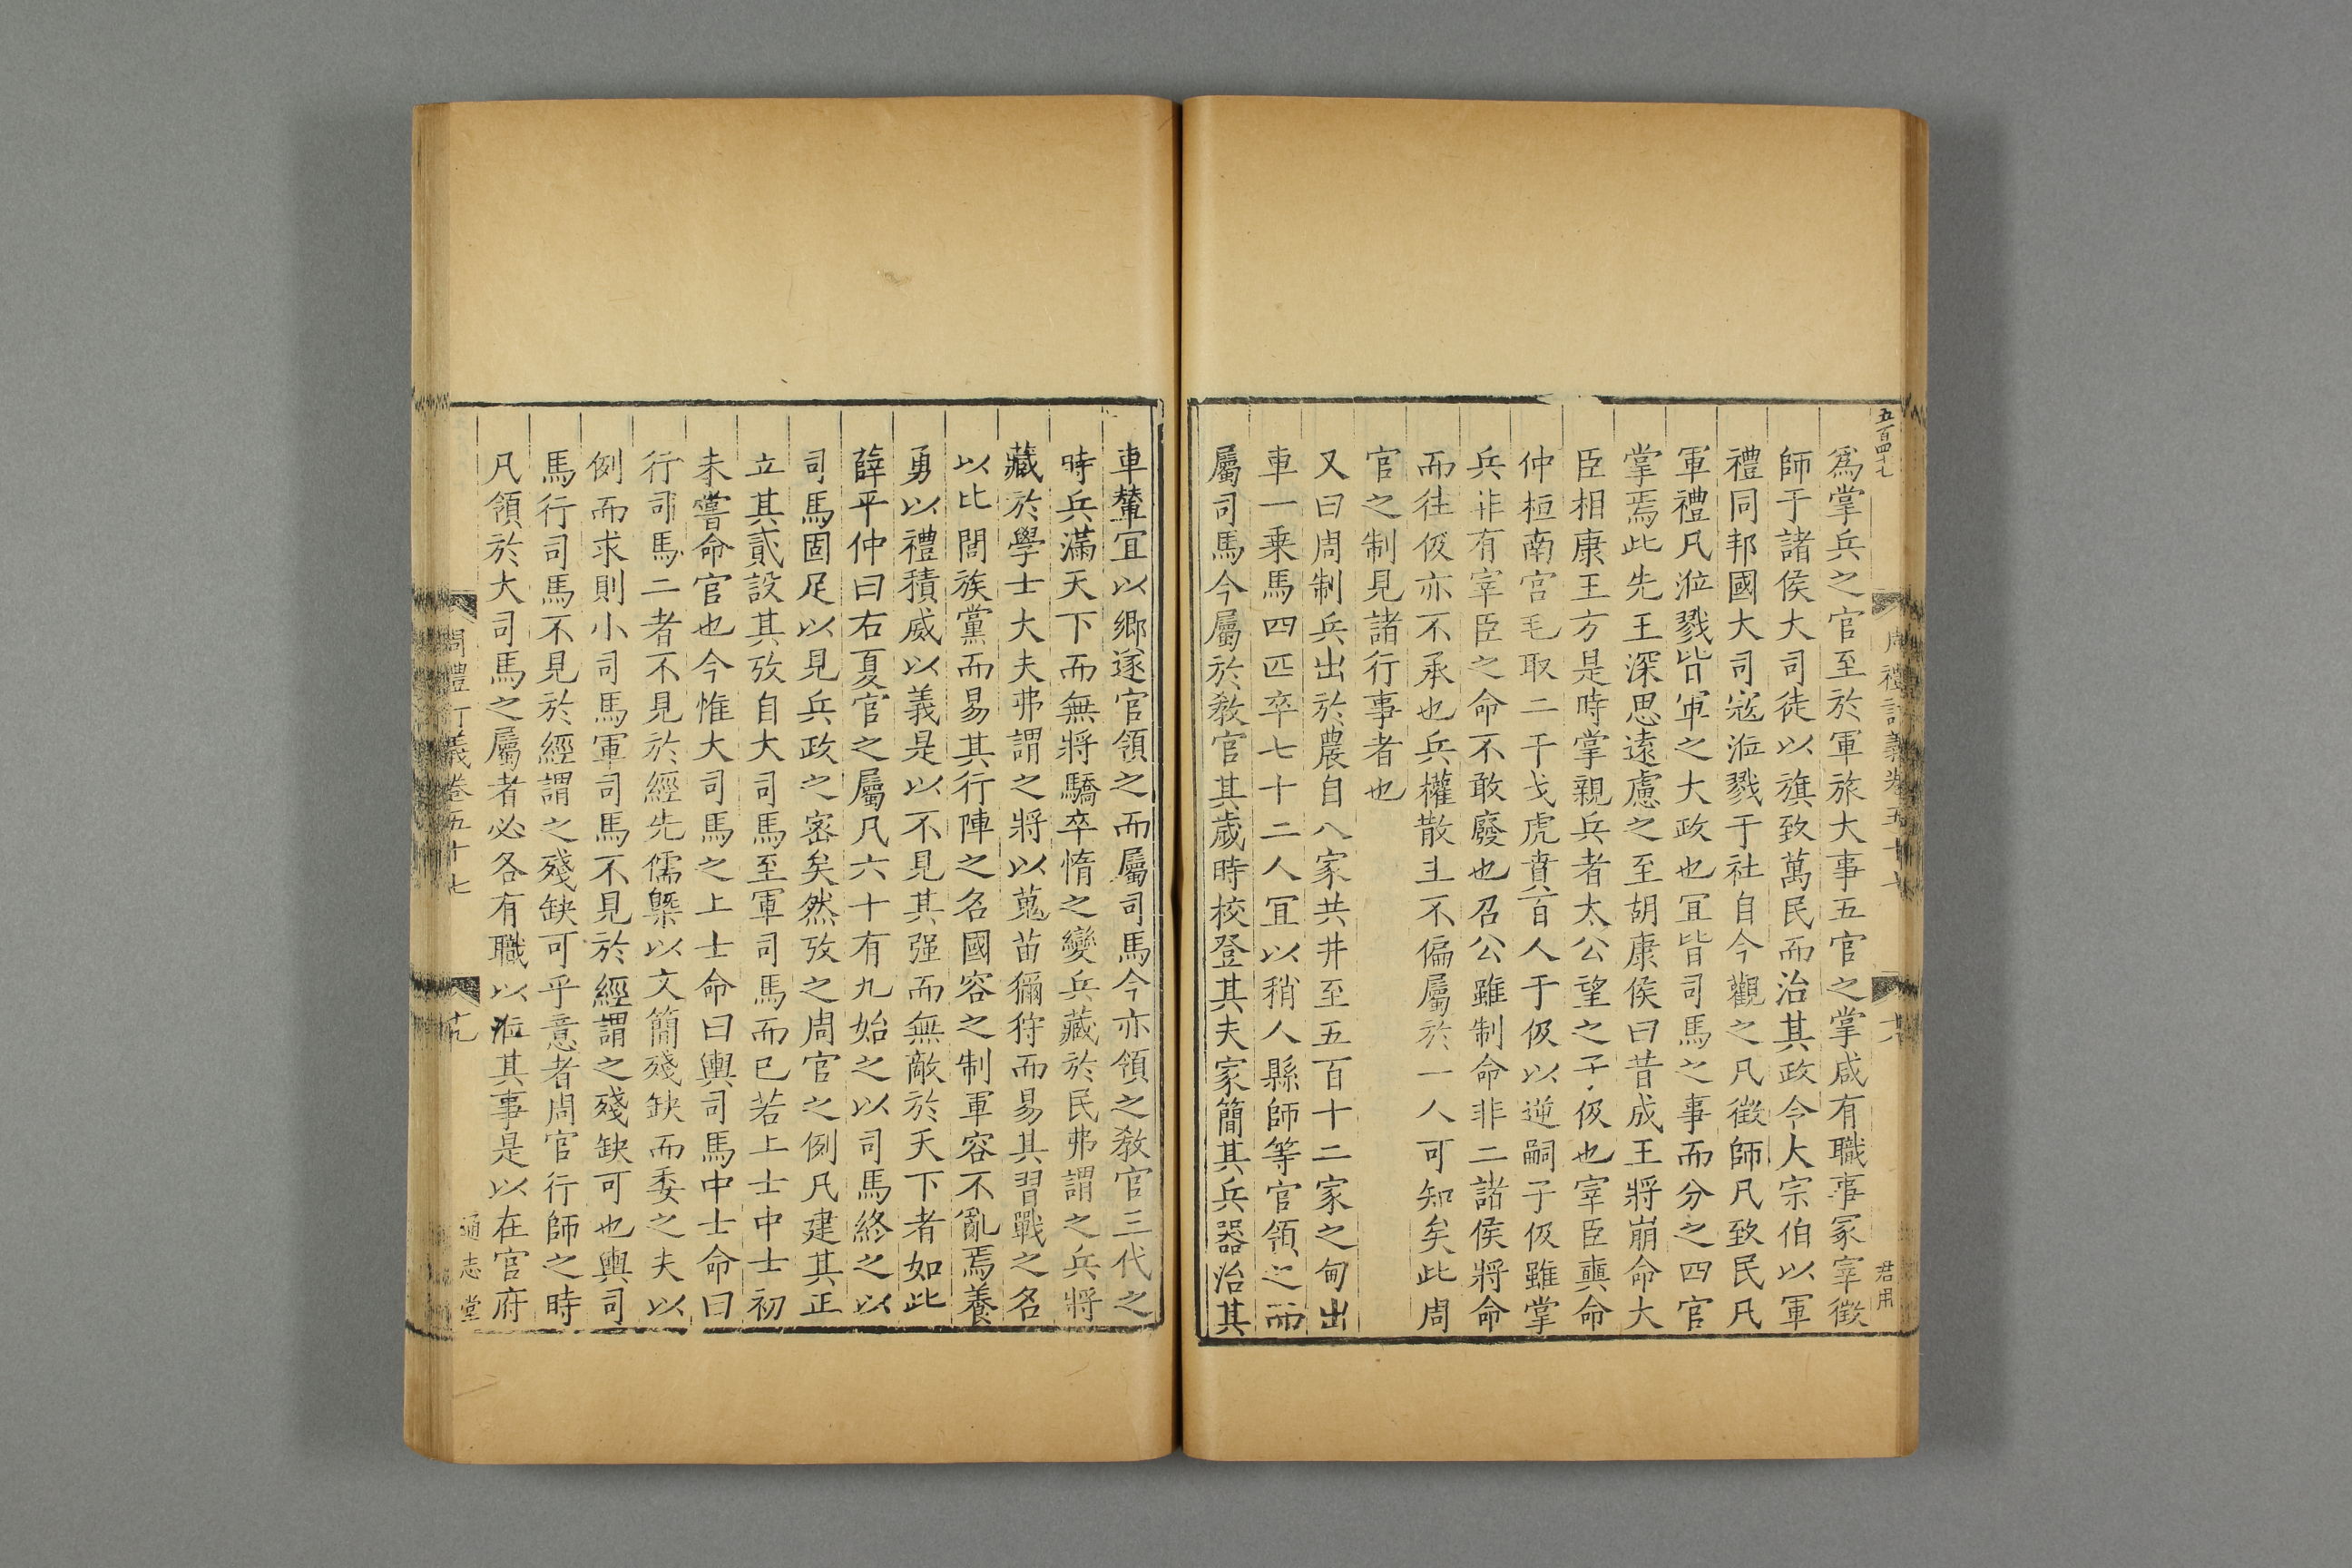 五百四十七
爲掌兵之官至於軍旅大事五官之掌咸有職事冢宰徵
師于諸侯大司徒以旗致萬民而治其政令大宗伯以軍
禮同邦國大司寇涖戮于社自今觀之凡徵師凡致民凡
軍禮凡涖戮皆軍之大政也宜皆司馬之事而分之四官
掌焉此先王深思遠慮之至胡康侯曰昔成王將崩命大
臣相康王方是時掌親兵者太公望之子伋也宰臣奭命
仲桓南宮毛取二干戈虎賁百人于伋以逆嗣子伋雖掌
兵非有宰臣之命不敢廢也召公雖制命非二諸侯將命
而往伋亦不承也兵權散主不偏屬於一人可知矣此周
官之制見諸行事者也
又曰周制兵出於農自八家共井至五百十二家之甸出
車一乗馬四匹卒七十二人宜以稍人縣師等官領之而
屬司馬今屬於敎官其歲時校登其夫家簡其兵器治其
周禮訂義卷五十七
君用
車輦宜以鄉遂官領之而屬司馬今亦領之敎官三代之
時兵滿天下而無將驕卒惰之變兵藏於民弗謂之兵將
藏於學士大夫弗謂之將以蒐苗獮狩而易其習戰之名
以比閭族黨而易其行陣之名國容之制軍容不亂焉養
勇以禮積威以義是以不見其强而無敵於天下者如此
薛平仲曰右夏官之屬凡六十有九始之以司馬終之以
司馬固足以見兵政之密矣然攷之周官之例凡建其正
立其貳設其攷自大司馬至軍司馬而已若上士中士初
未嘗命官也今惟大司馬之上士命曰輿司馬中士命曰
行司馬二者不見於經先儒槩以文簡殘缺而委之夫以
例而求則小司馬軍司馬不見於經謂之殘缺可也輿司
馬行司馬不見於經謂之殘缺可乎意者周官行師之時
凡領於大司馬之屬者必各有職以涖其事是以在官府
周禮訂義卷五十七
十九
通志堂